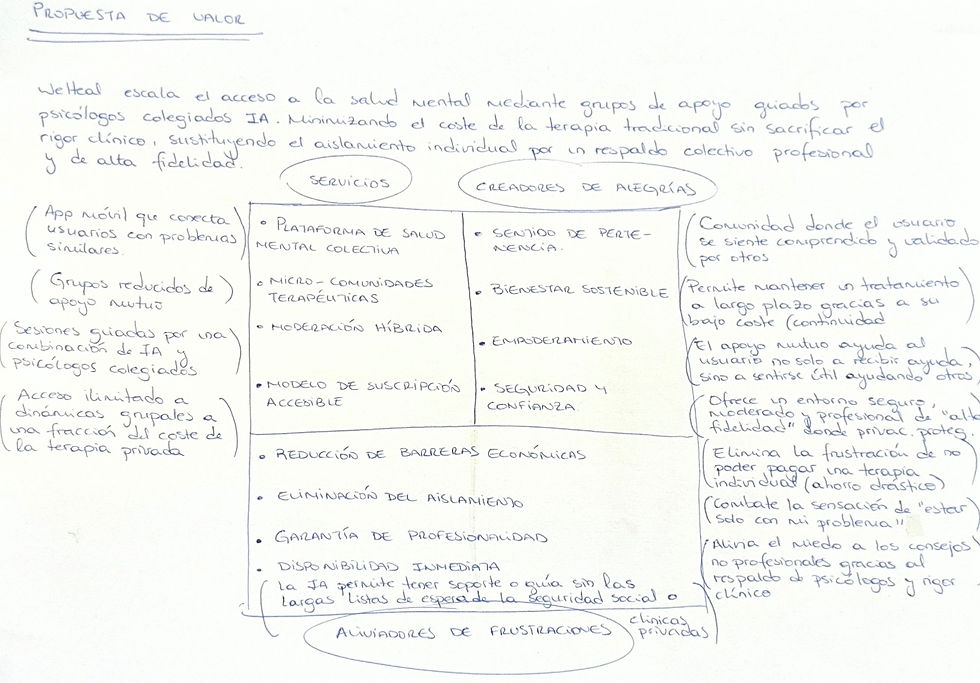 PROPUESTA DE VALOR
WeHeal escala el acceso a la salud mental mediante grupos de apoyo guiados por
psicólogos colegiados IA. Minimizando el coste de la terapia tradicional sin sacrificar el
rigor clínico, sustituyendo el aislamiento individual por un respaldo colectivo profesional
y de alta fidelidad.
SERVICIOS
CREADORES DE ALEGRÍAS
(App móvil que conecta
usuarios con problemas
similares.)
(Grupos reducidos de
apoyo mutuo)
(Sesiones guiadas por una
combinación de IA y
psicólogos colegiados)
(Acceso ilimitado a
dinámicas grupales a
una fracción del coste de
la terapia privada)
• PLATAFORMA DE SALUD
MENTAL COLECTIVA
• MICRO-COMUNIDADES
TERAPÉUTICAS
• MODERACIÓN HÍBRIDA
• MODELO DE SUSCRIPCIÓN
ACCESIBLE
• SENTIDO DE PERTE-
NENCIA.
• BIENESTAR SOSTENIBLE
• EMPODERAMIENTO
• SEGURIDAD Y
CONFIANZA
(Comunidad donde el usuario
se siente comprendido y validado
por otros
(Permite mantener un tratamiento
a largo plazo gracias a su
bajo coste (continuidad
(El apoyo mutuo ayuda al
usuario no solo a recibir ayuda,
sino a sentirse útil ayudando otros
(Ofrece un entorno seguro,
moderado y profesional de "alta
fidelidad" donde privac. proteg.
(Elimina la frustración de no
poder pagar una terapia
individual (ahorro drástico)
(Combate la sensación de "estar
solo con mi problema")
(Alivia el miedo a los consejos
no profesionales gracias al
respaldo d psicólogos y rigor
clínico
• REDUCCIÓN DE BARRERAS ECONÓMICAS
• ELIMINACIÓN DEL AISLAMIENTO
• GARANTÍA DE PROFESIONALIDAD
• DISPONIBILIDAD INMEDIATA
(La IA permite tener soporte o guía sin las
largas listas de espera de la seguridad social o
clínicas
privadas)
ALIVIADORES DE FRUSTRACIONES